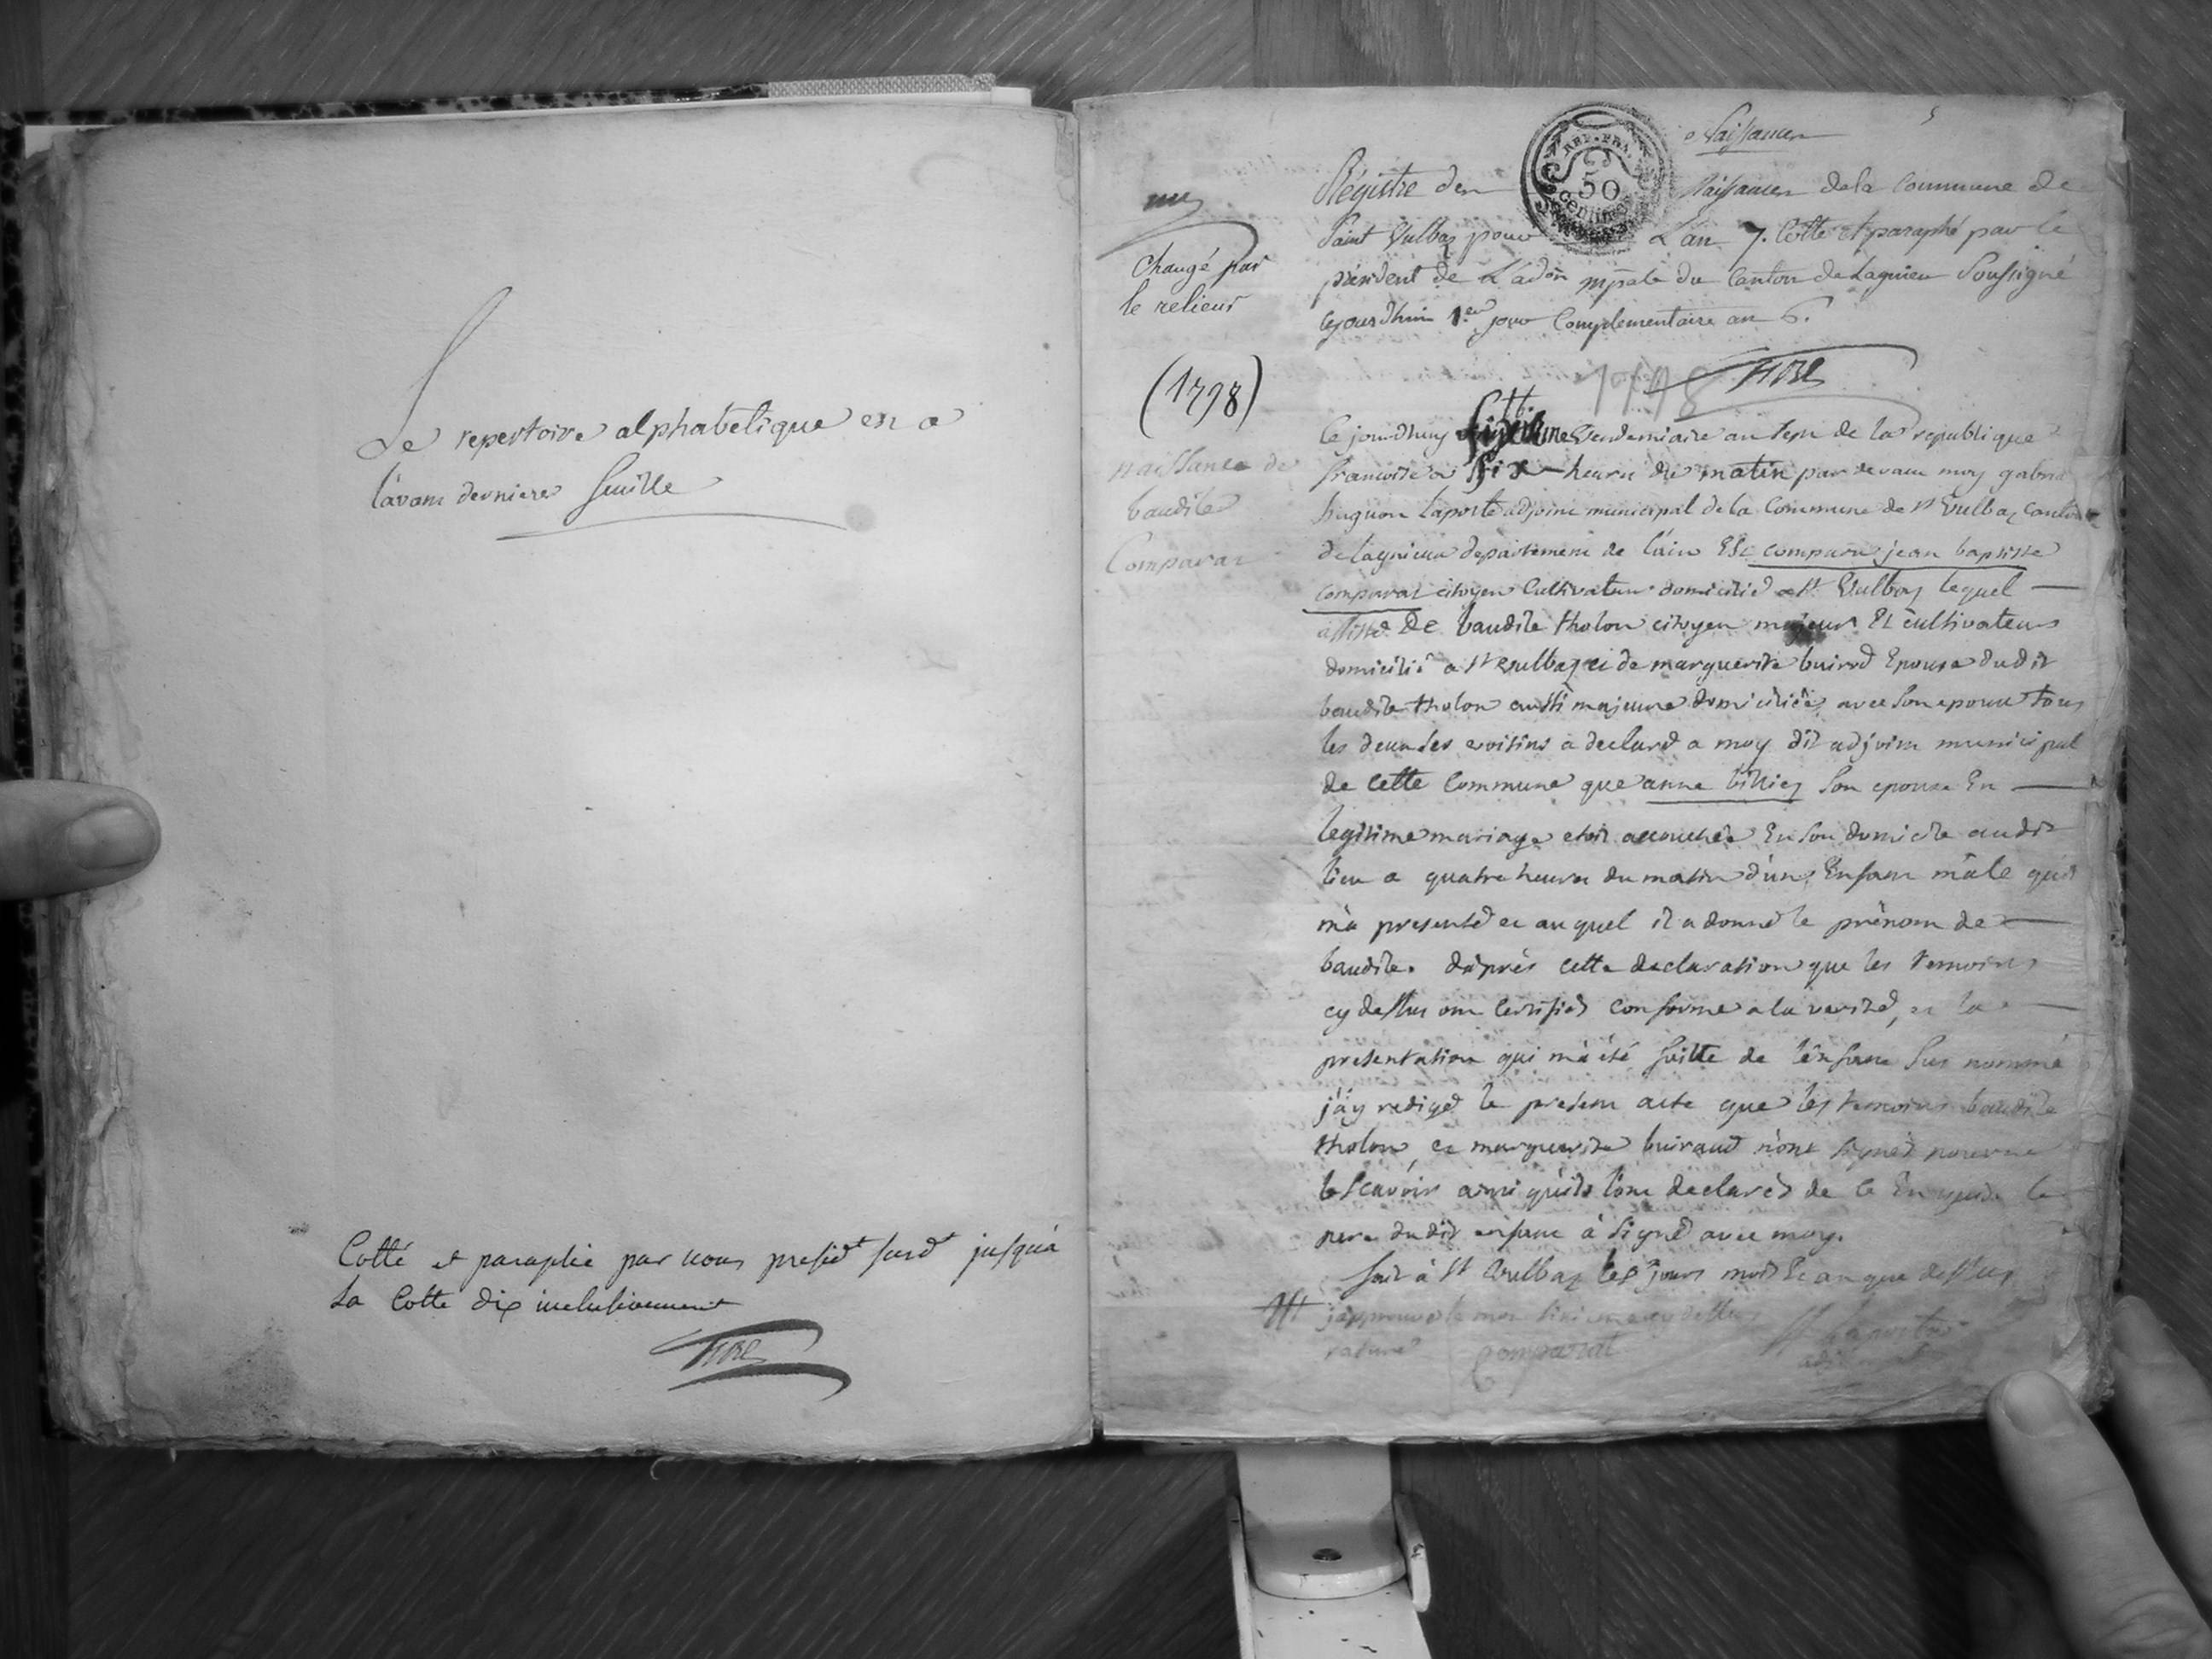 Le repertoire alphabetique en a
l'avant derniere feuille
Cotté et paraphé par nous presidt susdt jusqu'à
la Cotte dix inclusivement
Naissances
5
REP. FRA.
50
centimes
Régistre des Naissances de la Commune de
Saint Vulbaz pour L'an 7. Cotté et paraphé par le
président de L'adon mpale du Canton de Lagnieu Soussigné
cejourdhui 1er jour Complémentaire an 6.
changé par
le relieur
(1798)
1798
naissance de
baudile
Comparat
Ce jourdhuy vendemiaire an sept de la republique
francoise a six heures du matin par devant moy gabriel
huguon laporte adjoint municipal de la Commune de St Vulbaz canton
de lagnieux departement de l'ain Est comparu jean baptiste
comparat citoyen Cultivateur domicilié a St Vulbaz lequel
assisté De baudile tholon citoyen majeur Et cultivateur
domicilié a St vulbaz et de marguerite buirod Epouse dudit
baudile tholon aussi majeure domiciliée avec son epoux tous
les deux ses voisins a declaré a moy dit adjoint municipal
de cette Commune que anne billiez son epouse En
legitime mariage etoit accouchée En son domicile audit
lieu a quatre heures du matin d'un Enfant mâle quil
m'a presenté et auquel il a donné le prénom de
baudile. d'aprés cette declaration que les temoins
cy dessus ont Certifiés conforme a la verité, et la
presentation qui m'a été faitte de l'enfant sus nommé
j'ay redigé le present acte que les temoins baudile
tholon, et marguerite buiraud n'ont signés pour ne
le scavoir ainsi qu'ils l'ont declarés de ce Enquis le
pere dudit enfant à signé avec moy.
fait à St Vulbaz les jours mois Et an que dessus
japprouve le mot cy dessus
raturé
comparat